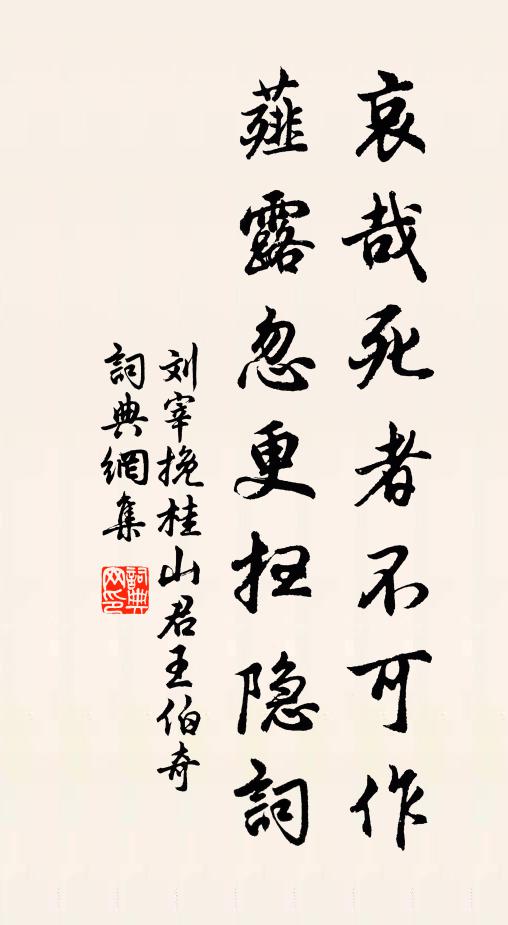 哀哉死者不可作
薤露忽更抂隐詞
刘宰挽桂山君王伯奇
詞典網集
詞典
网印